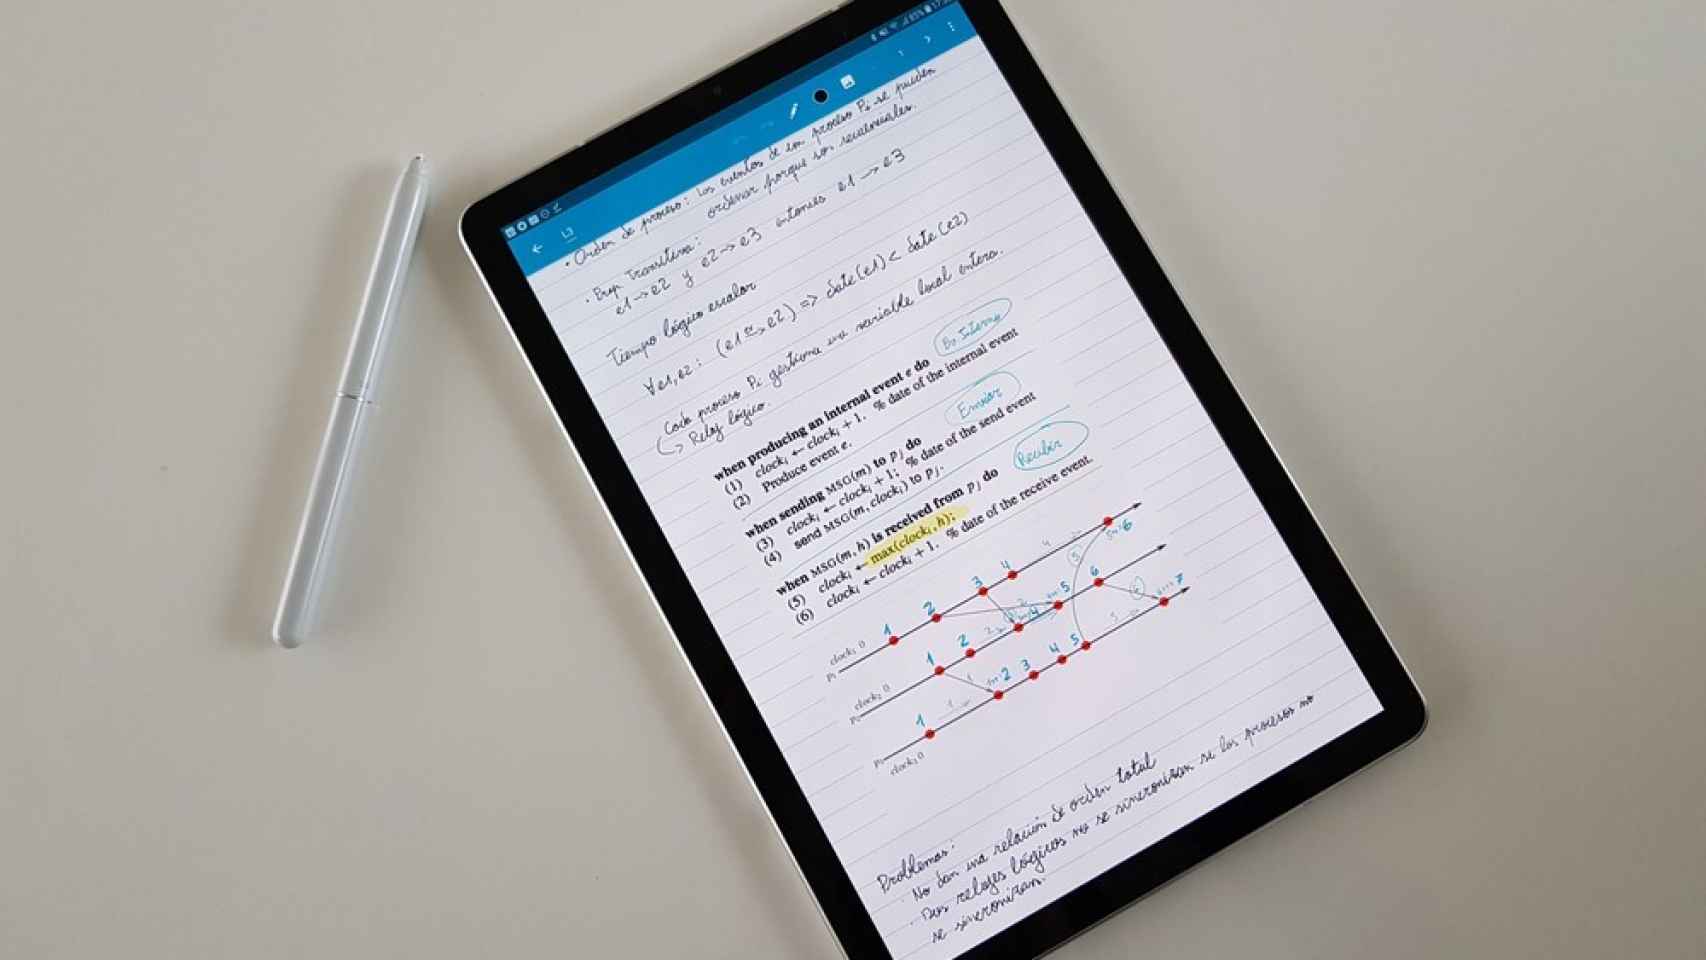 L3
• Orden de proceso: los eventos de un proceso Pi se pueden
ordenar porque son secuenciales.
• Prop Transitiva:
e1→e2 y e2→e3 entonces e1→e3
Tiempo lógico escalar
∀e1,e2: (e1 → e2) => date(e1) < date(e2)
Cada proceso Pi gestiona una variable local entera.
↳ Reloj lógico.
Ev. Interno
when producing an internal event e do
(1) clocki ← clocki + 1. % date of the internal event
(2) Produce event e.
Enviar
when sending MSG(m) to pj do
(3) clocki ← clocki + 1; % date of the send event
(4) send MSG(m, clocki) to pj.
Recibir
when MSG(m, h) is received from pj do
(5) clocki ← max(clocki, h);
(6) clocki ← clocki + 1. % date of the receive event.
P1 clock1 0 1 2 3 4 5+1:6
P2 clock2 0 1 2 4 5 6
P3 clock3 0 1 2 3 4 5 7
Problemas:
· No dan una relación de orden total
· Dos relojes lógicos no se sincronizan si los procesos no
se sincronizan.